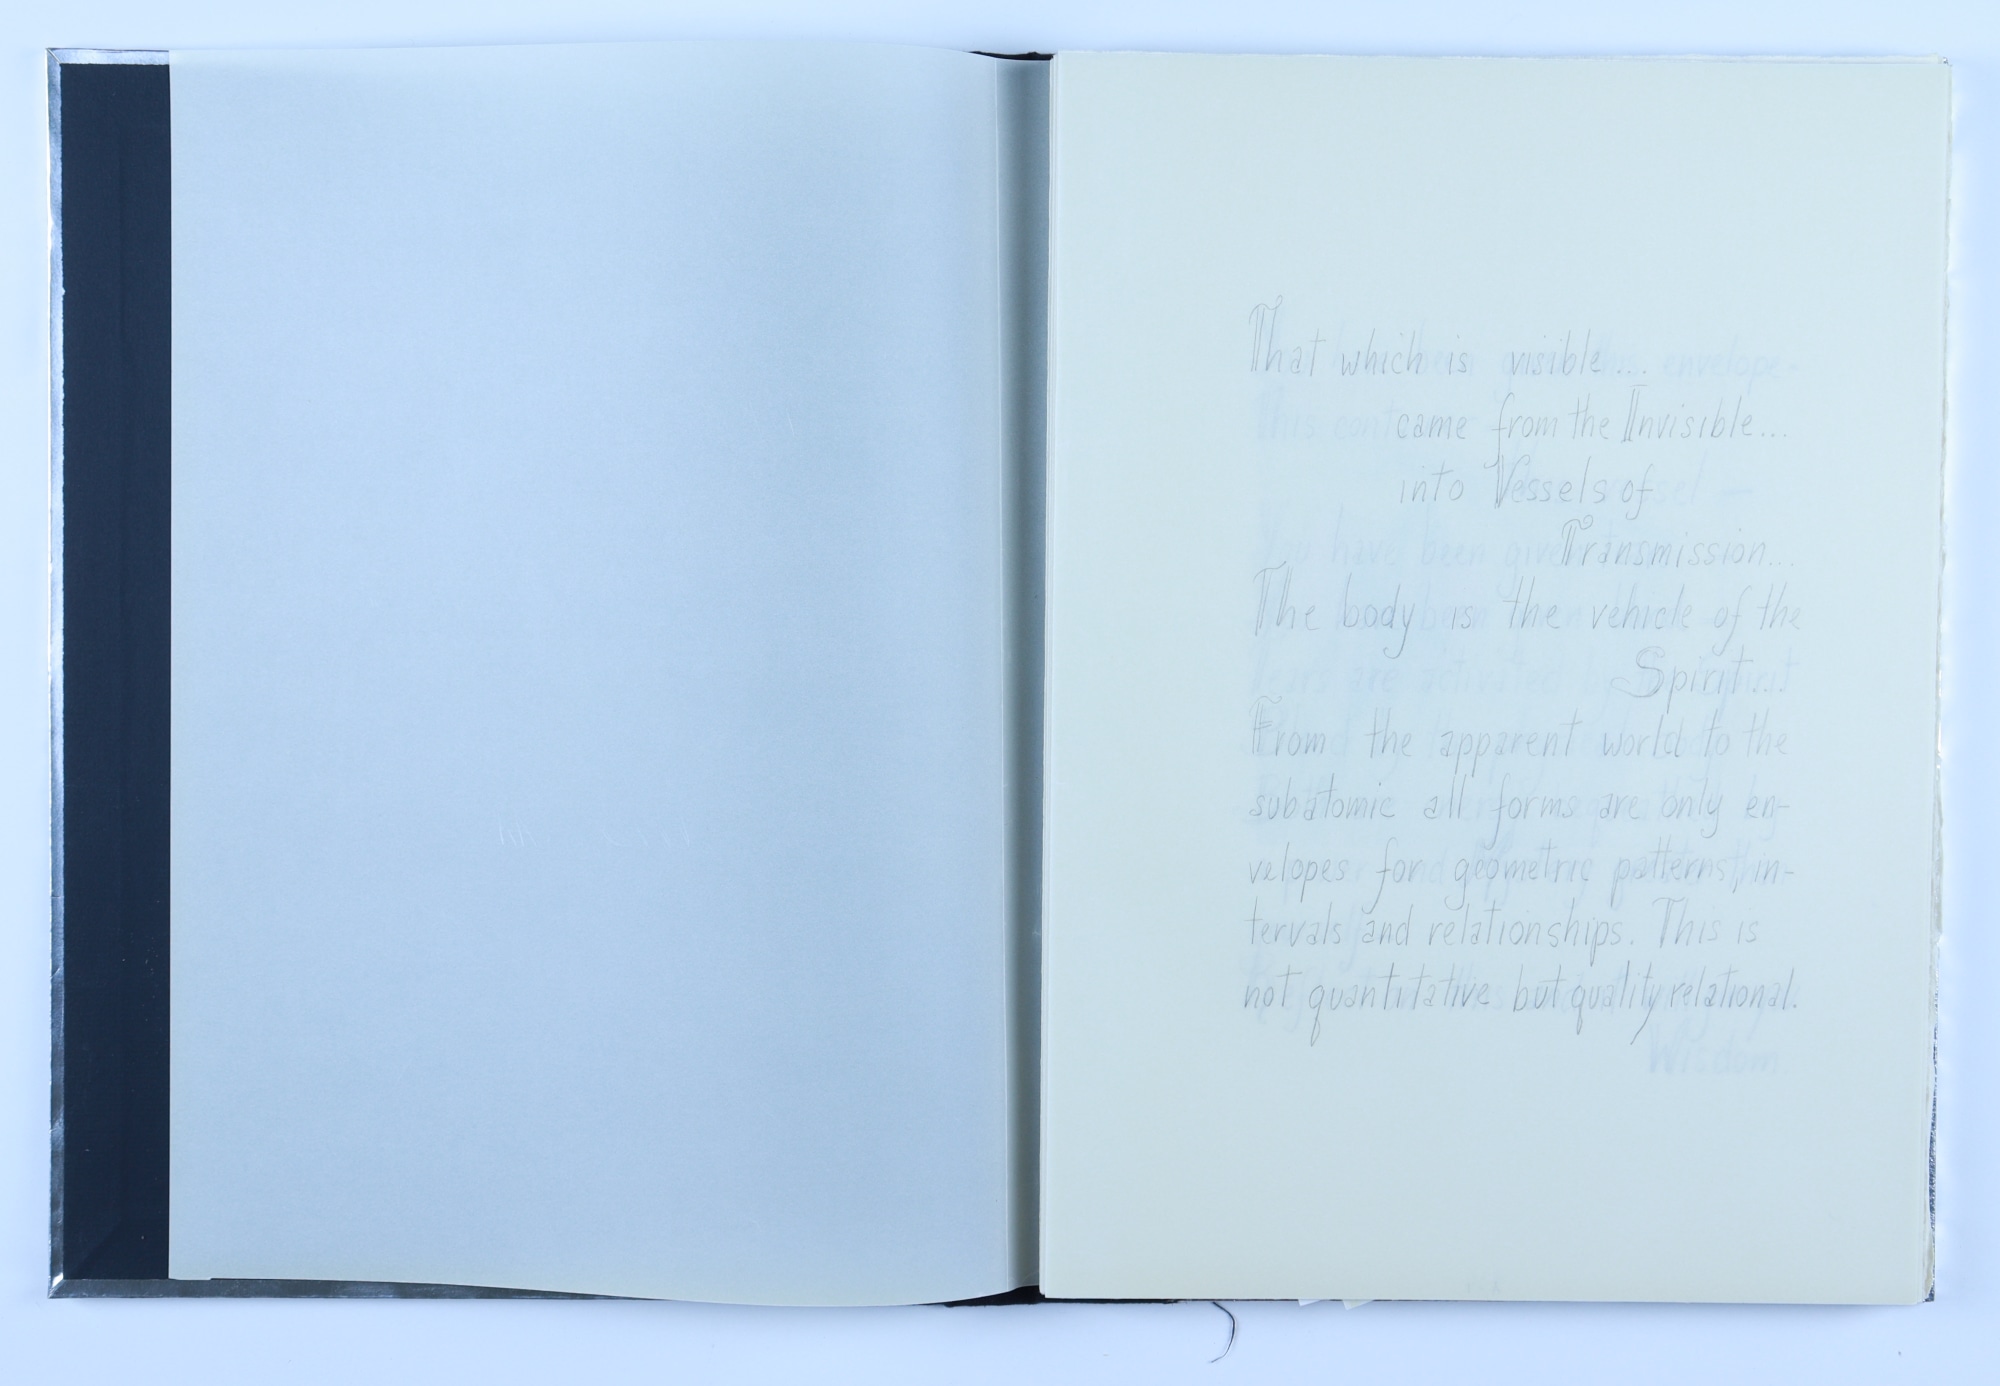 That which is visible...
came from the Invisible...
into Vessels of
Transmission...
The body is the vehicle of the
Spirit...
From the apparent world to the
subatomic all forms are only en-
velopes for geometric patterns, in-
tervals and relationships. This is
not quantitative but quality relational.
Wisdom.